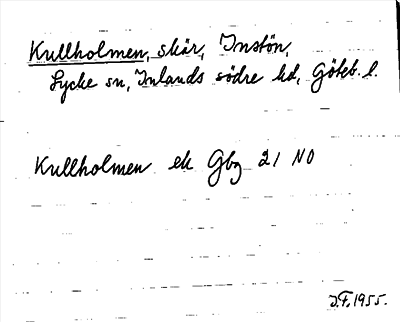 Kullholmen, skär, Instön,
Lycke sn, Inlands södre hd, Göteb. l.
Kullholmen ek Gbg 21 NO
D.F. 1955.